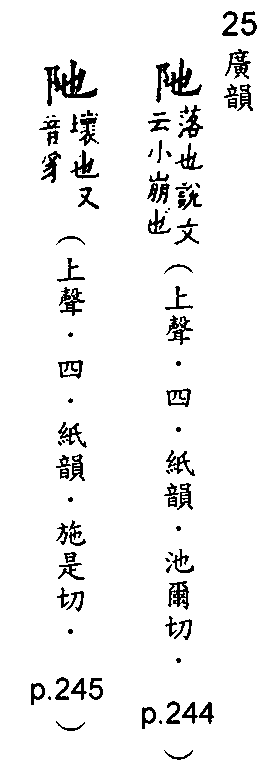 25 廣韻
阤 落也說文云小崩也（上聲．四．紙韻．池爾切．p.244）
阤 壞也又音豸（上聲．四．紙韻．施是切．p.245）